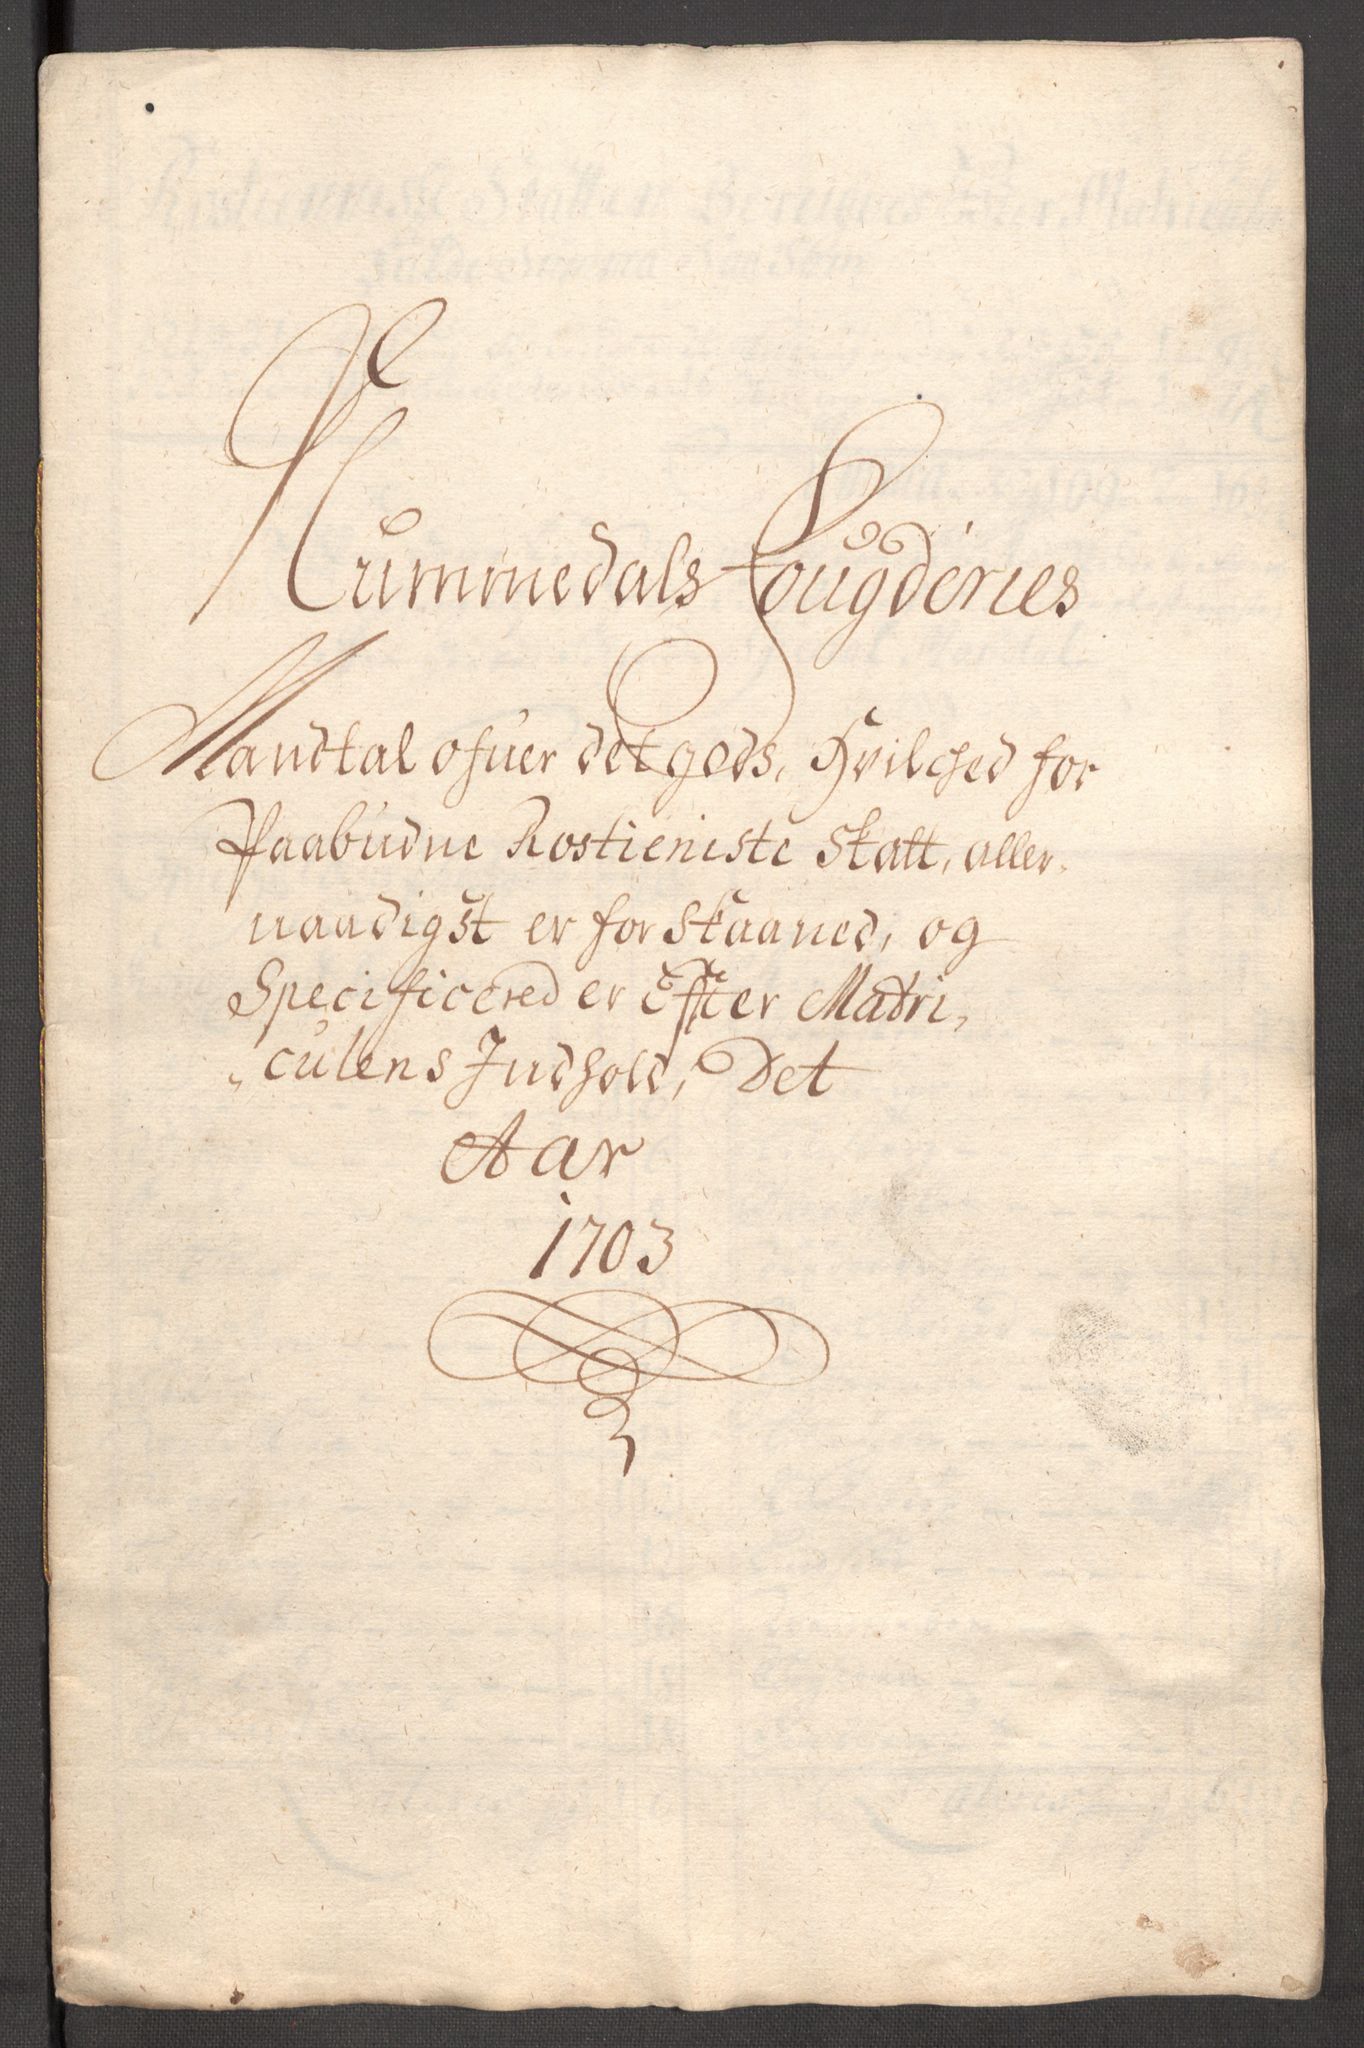 Nummedals Fougderies
Mandtal ofuer det gods, Hvilched for
Paabudne Rostieniste Skatt, aller„
naadigst er for Skaaned, og
Specificered er Efter Matri„
„culens Indhold, Det
Aar
1703